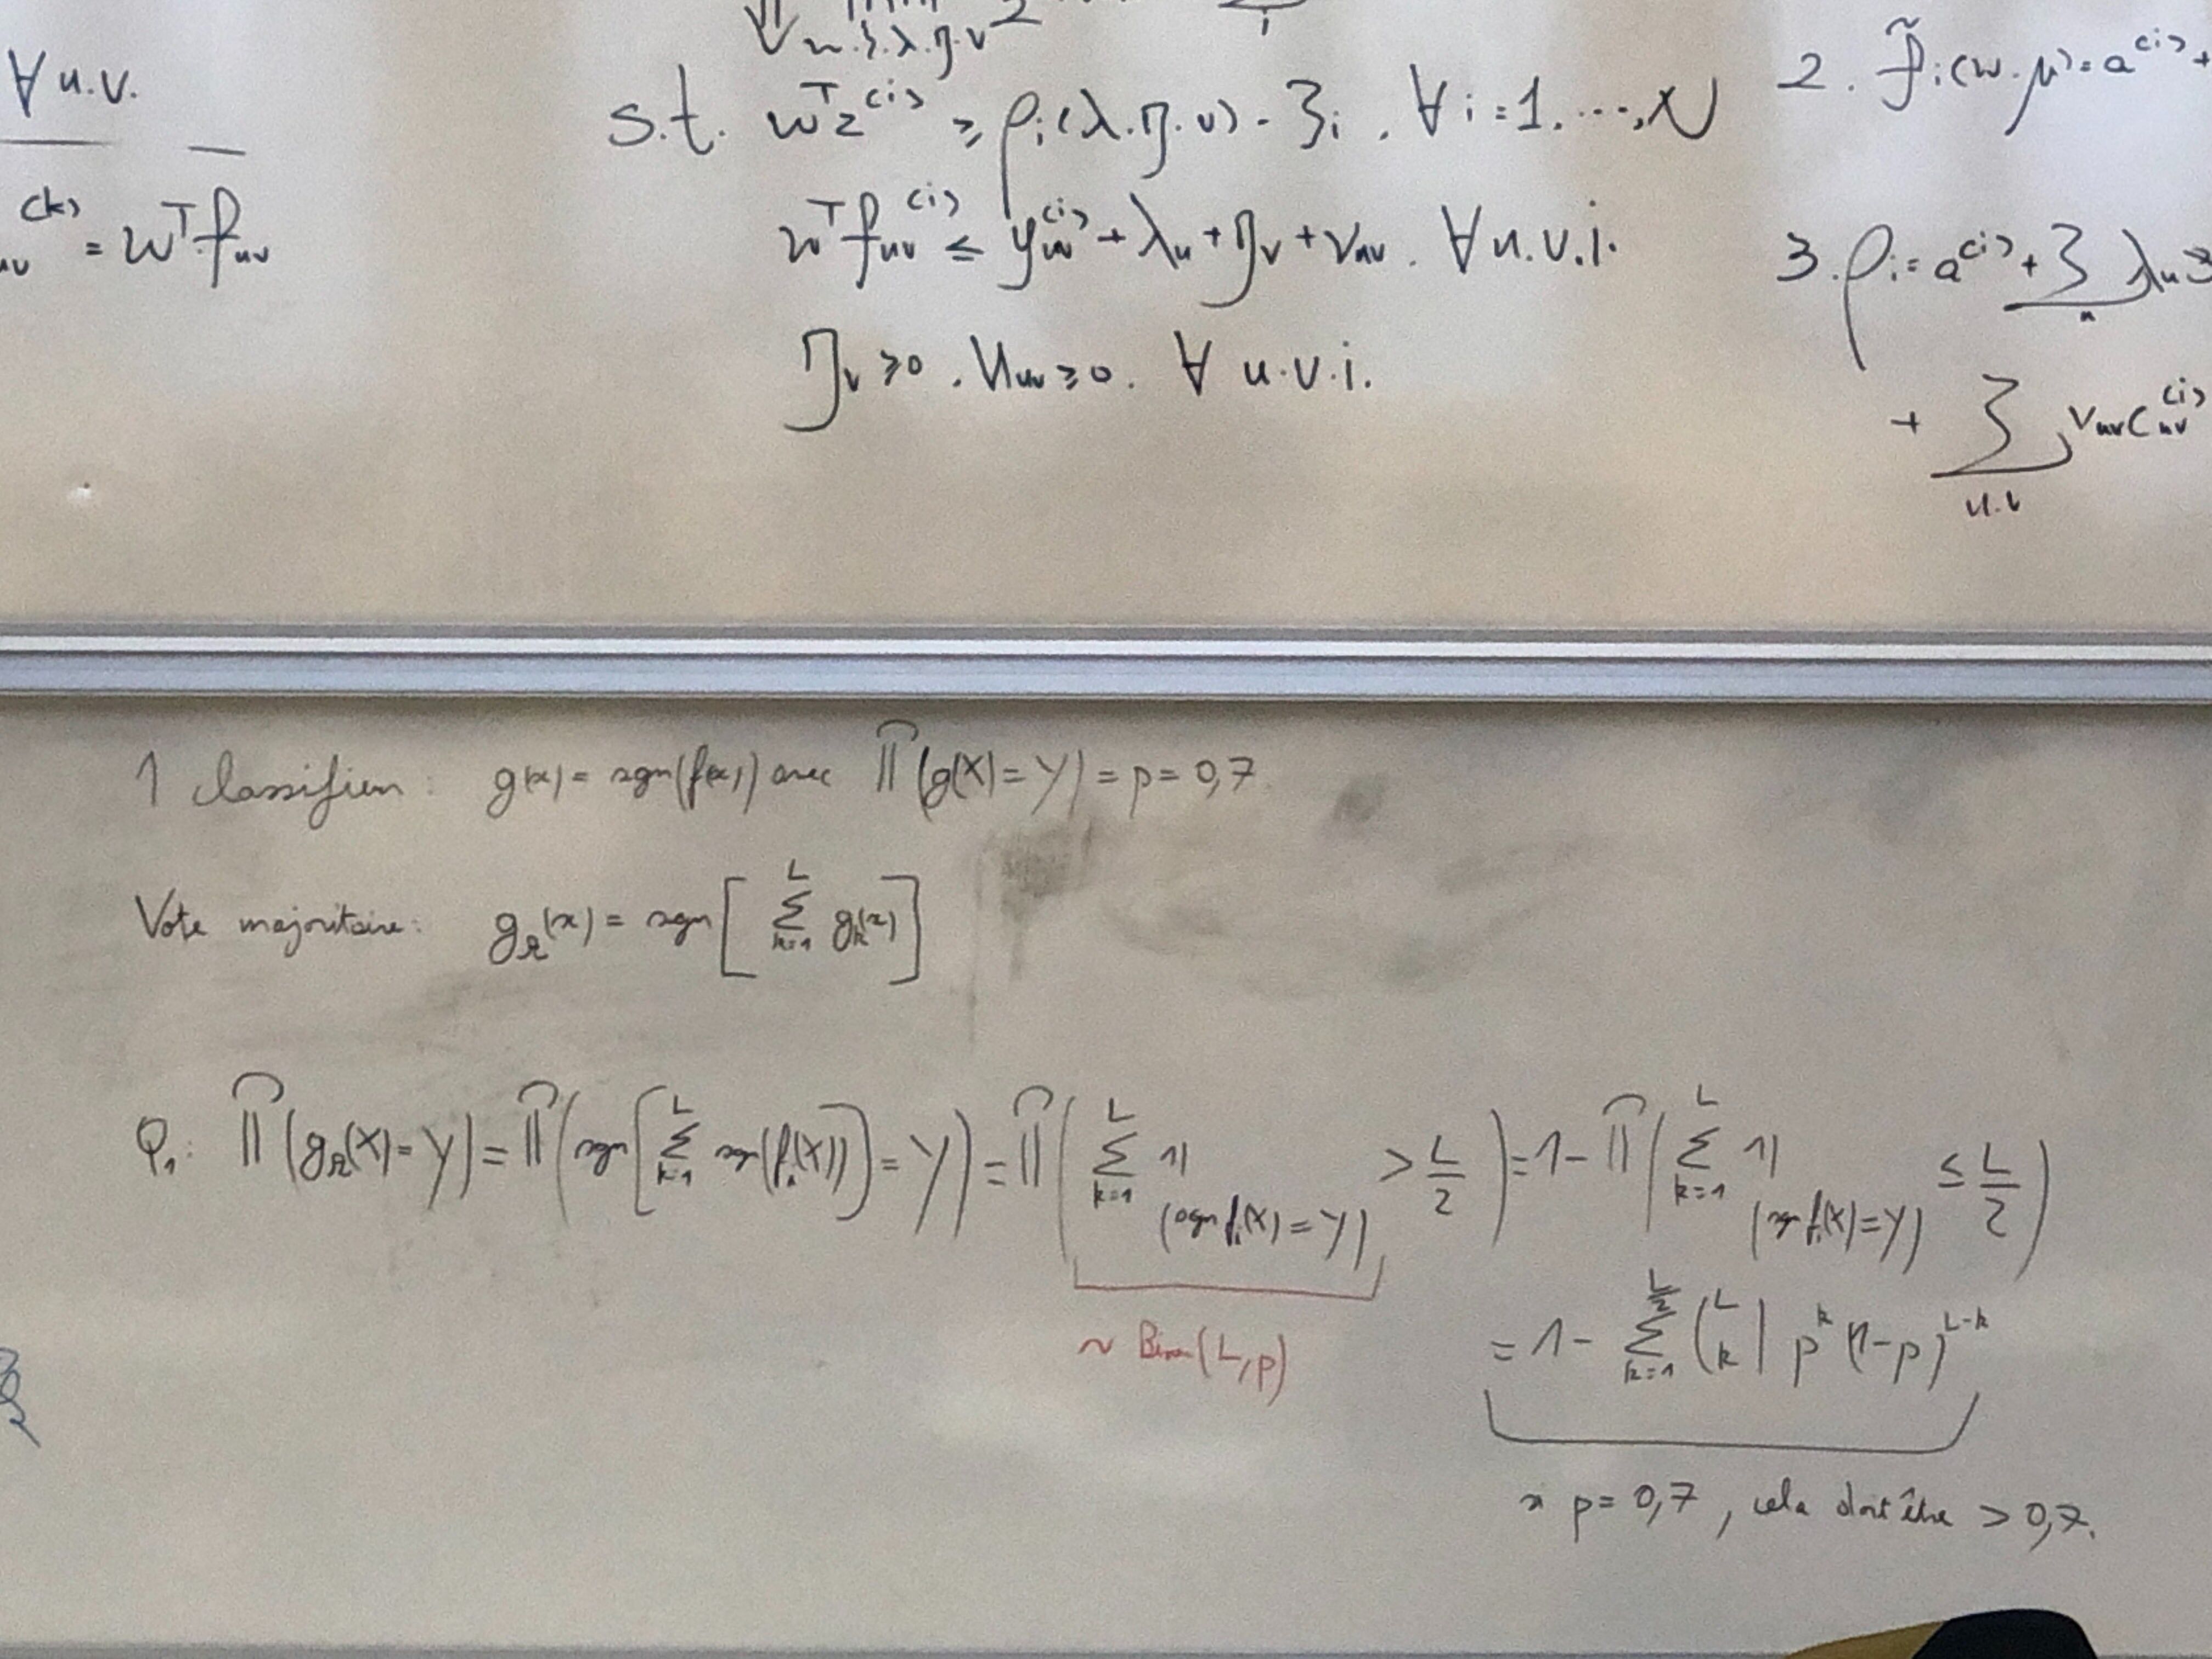 ∀ u.v.
(k)
uv = wᵀf_uv
w.ξ.λ.η.ν 2 i
s.t. wᵀz^(i) ≥ ρ_i(λ.η.ν) - ξ_i . ∀ i = 1. ...,N
wᵀf_uv^(i) ≤ y_uv^(i) + λ_u + η_v + ν_uv . ∀ u.v.i.
η_v ≥ 0 . ν_uv ≥ 0 . ∀ u.v.i.
2. f̃_i(w.μ) = a^(i) +
3. ρ_i = a^(i) + Σ_u λ_u
+ Σ_{u.v} ν_uv c_uv^(i)
1 classifieur : g(x) = sgn(f(x)) avec ℙ(g(X) = Y) = p = 0,7
Vote majoritaire : g_R(x) = sgn[ Σ_{k=1}^{L} g_k(x) ]
Q₁ : ℙ(g_R(X) = Y) = ℙ(sgn[ Σ_{k=1}^{L} sgn(f_k(X)) ] = Y) = ℙ( Σ_{k=1}^{L} 𝟙_(sgn f_k(X) = Y) > L/2 ) = 1 - ℙ( Σ_{k=1}^{L} 𝟙_(sgn f_k(X) = Y) ≤ L/2 )
~ Binom(L,p)
= 1 - Σ_{k=1}^{L/2} (L k) p^k (1-p)^{L-k}
si p = 0,7 , cela doit être > 0,7.